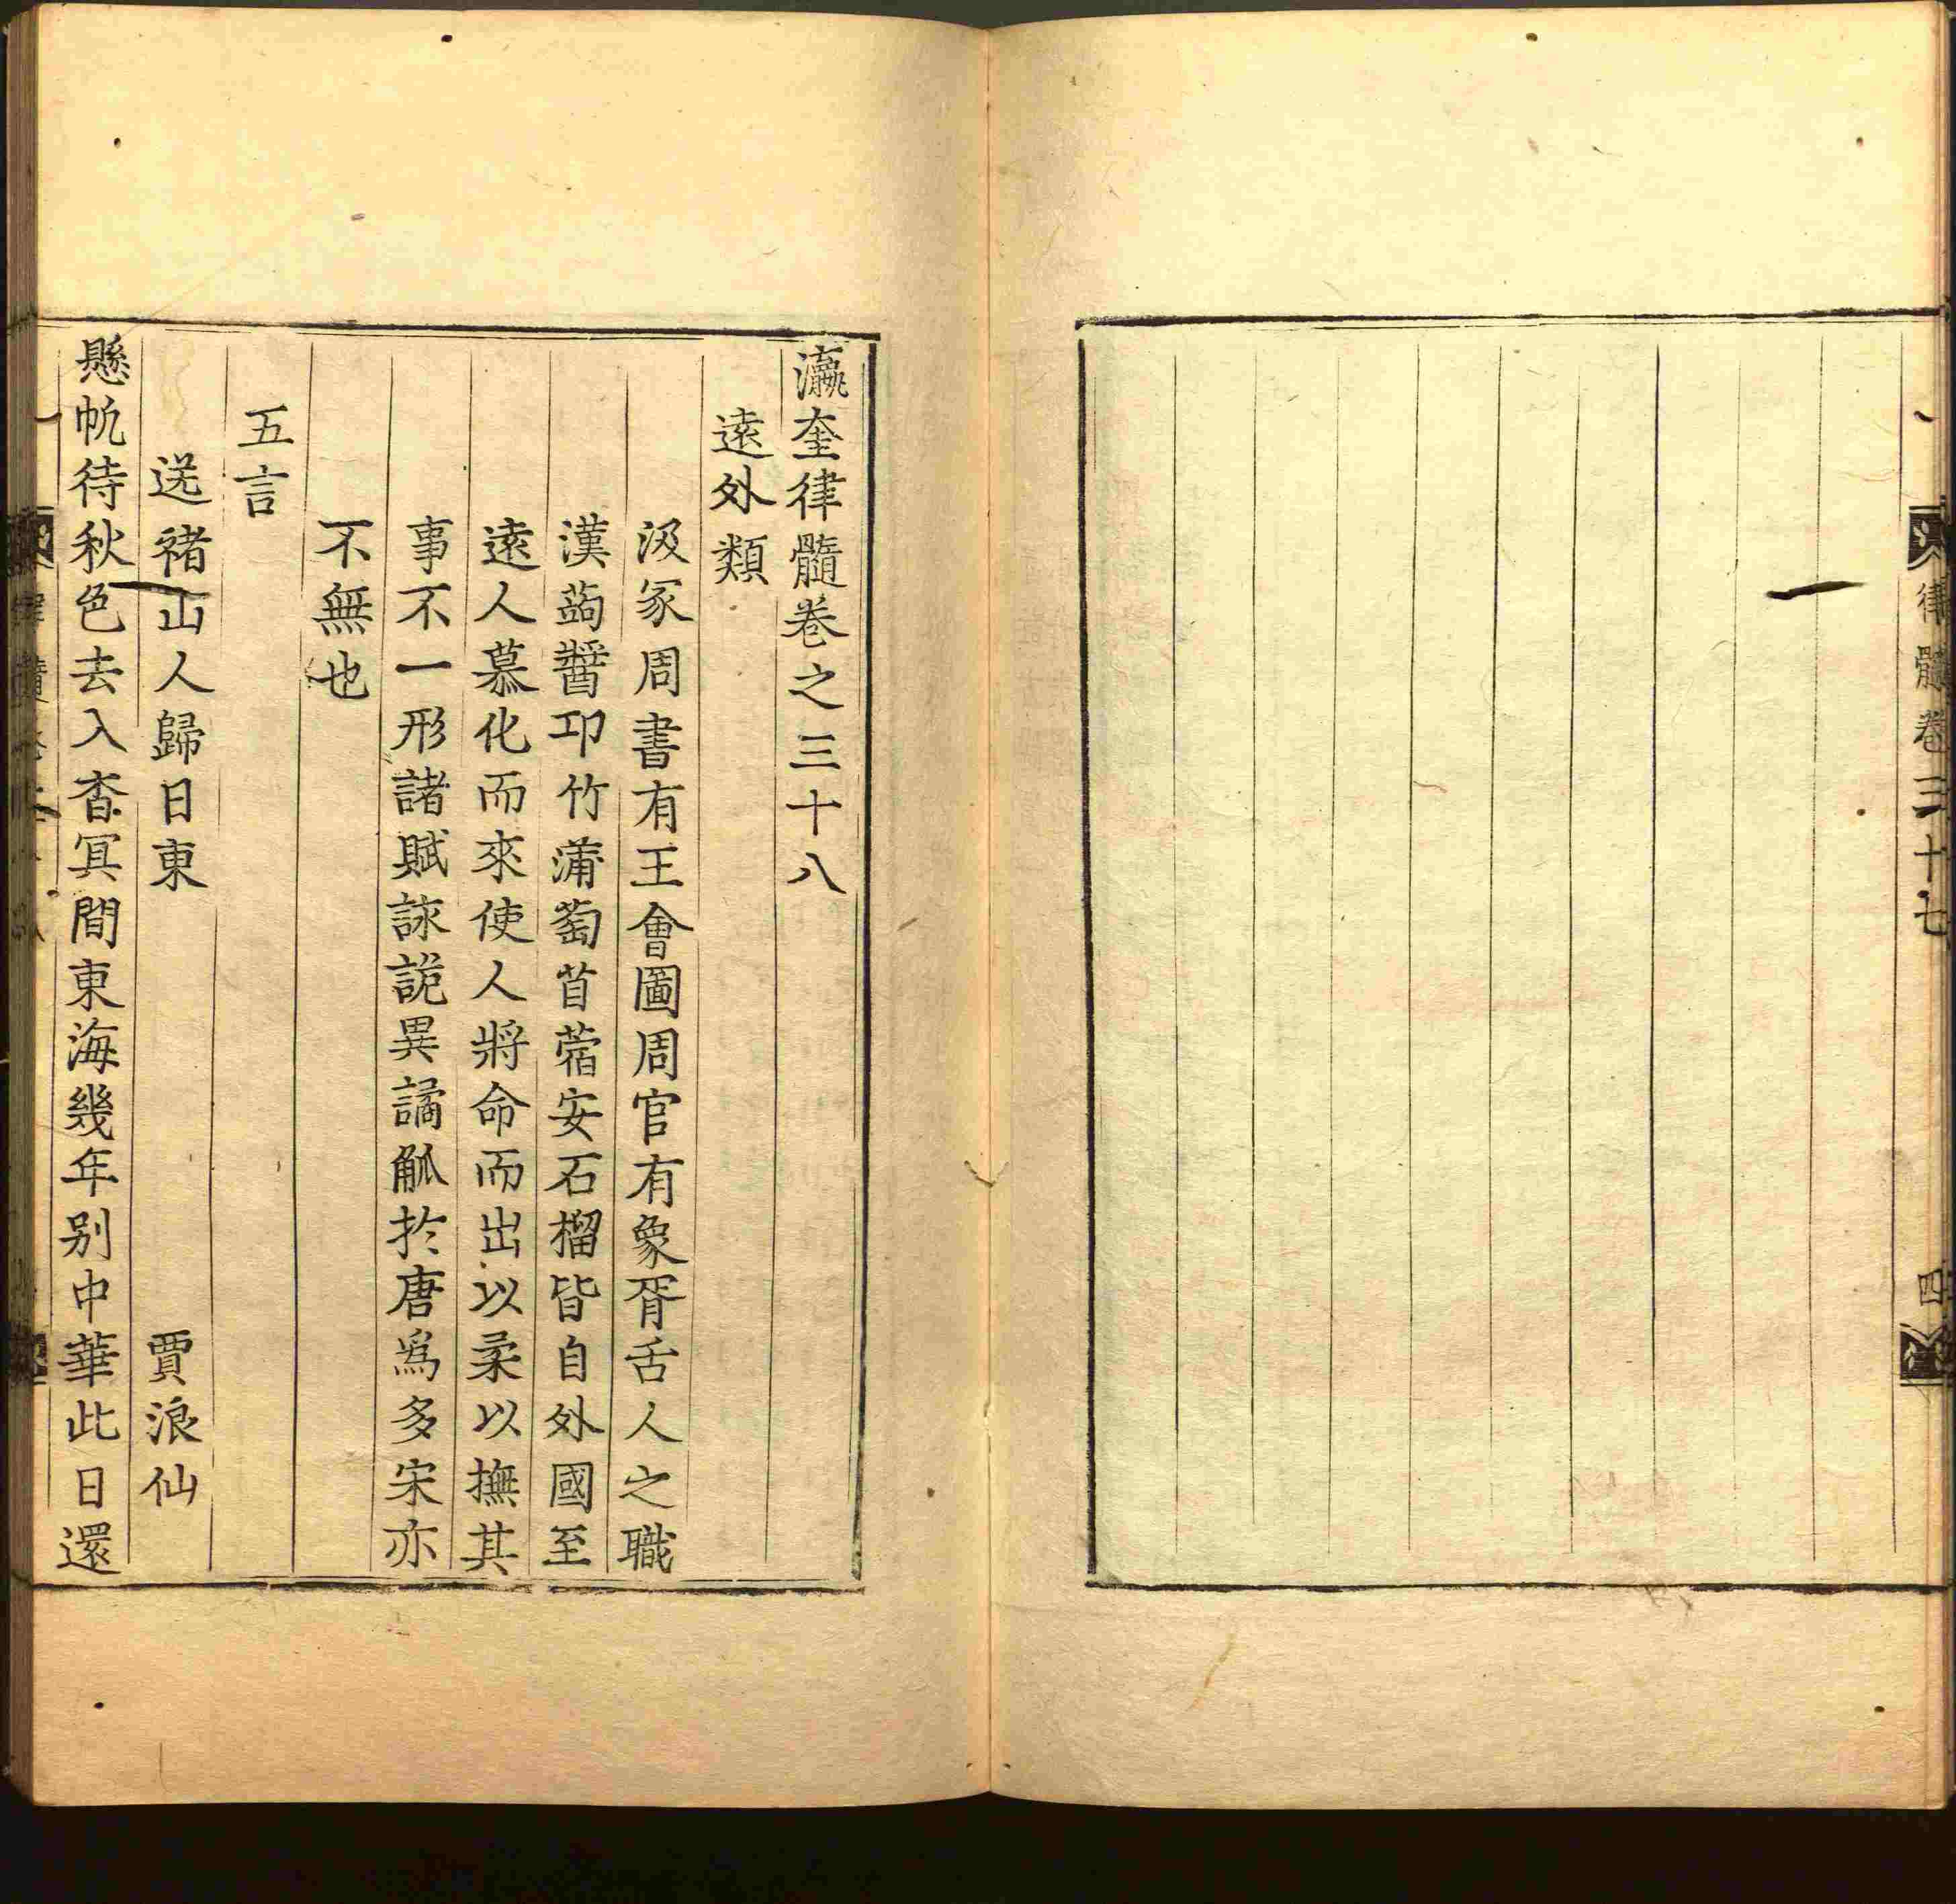 律髓卷三十七
四
瀛奎律髓卷之三十八
遠外類
汲冢周書有王會圖周官有象胥舌人之職
漢蒟醬邛竹蒲萄苜蓿安石榴皆自外國至
遠人慕化而來使人將命而出以柔以撫其
事不一形諸賦詠詭異譎觚於唐爲多宋亦
不無也
五言
送褚山人歸日東
賈浪仙
懸帆待秋色去入杳冥間東海幾年别中華此日還